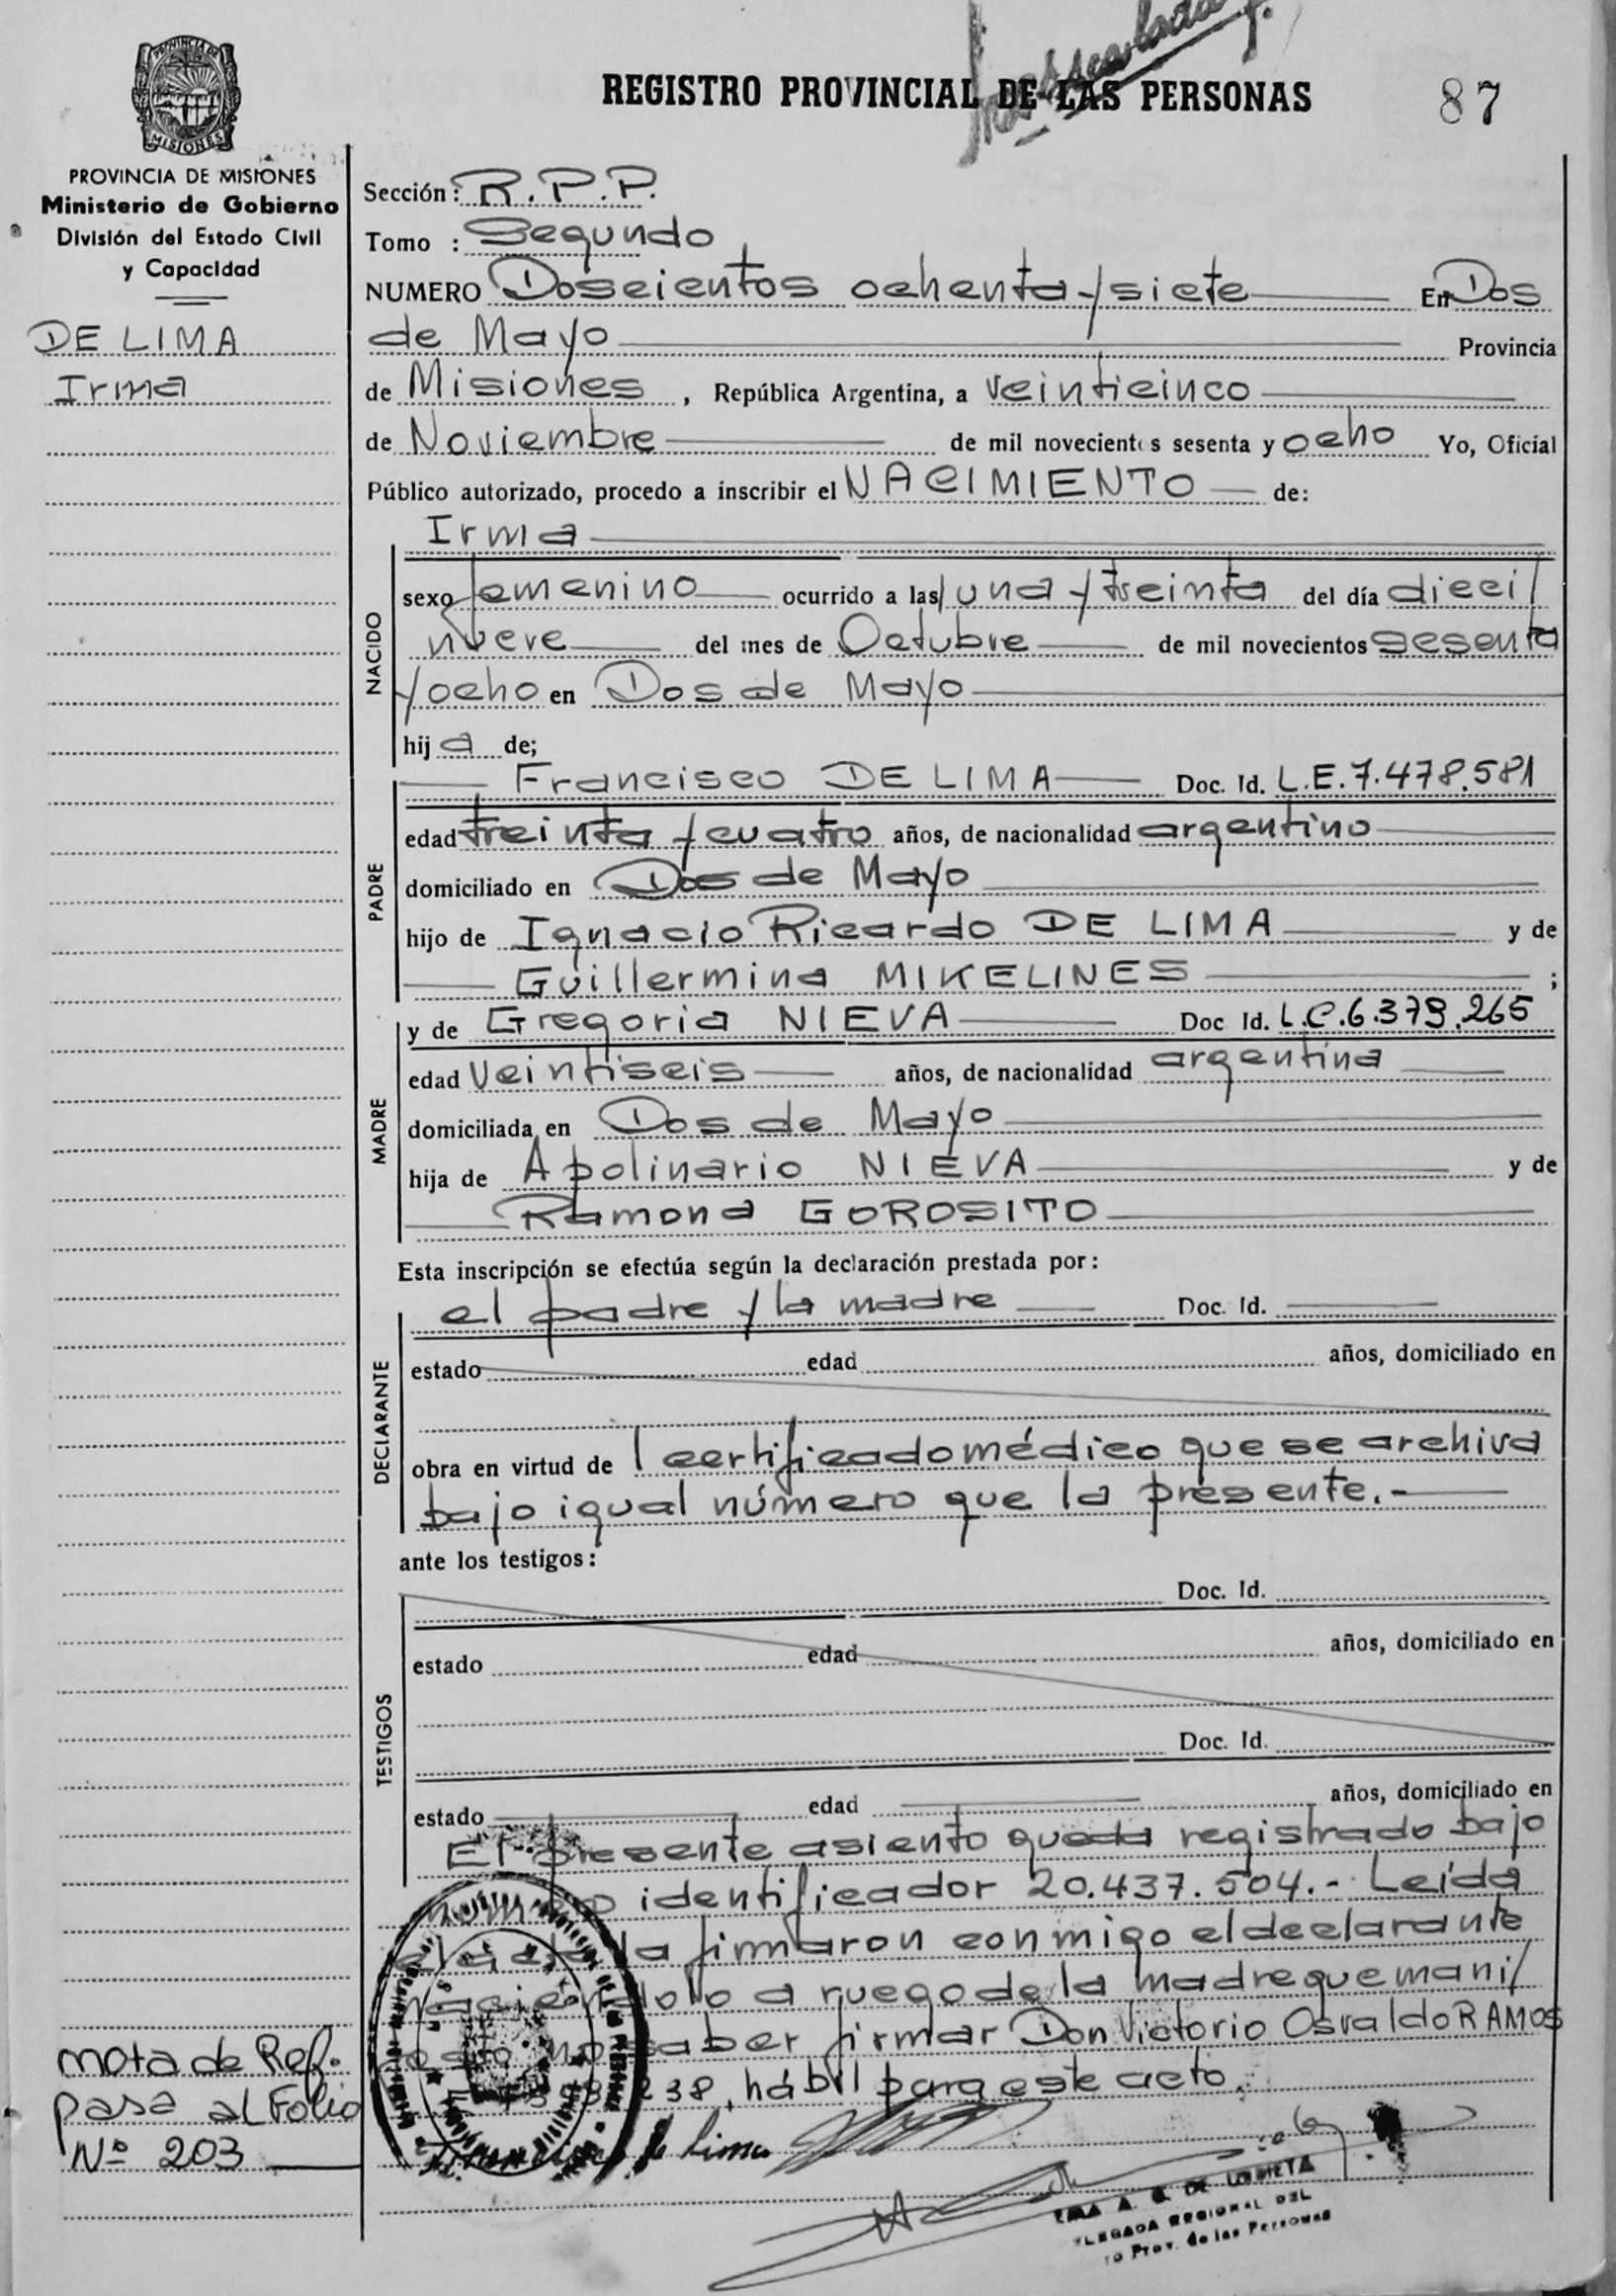 REGISTRO PROVINCIAL DE LAS PERSONAS
87
PROVINCIA DE MISIONES
PROVINCIA DE MISIONES
Ministerio de Gobierno
División del Estado Civil
y Capacidad
DE LIMA
Irma
Sección: R.P.P.
Tomo : Segundo
NUMERO Doscientos ochenta y siete En Dos
de Mayo Provincia
de Misiones, República Argentina, a veinticinco
de Noviembre de mil novecientos sesenta y ocho Yo, Oficial
Público autorizado, procedo a inscribir el NACIMIENTO de:
Irma
NACIDO
sexo femenino ocurrido a las/ una y treinta del día dieci/
nueve del mes de Octubre de mil novecientos sesenta
y ocho en Dos de Mayo
hij a de;
PADRE
Francisco DE LIMA Doc. Id. L.E.7.478.581
edad treinta y cuatro años, de nacionalidad argentino
domiciliado en Dos de Mayo
hijo de Ignacio Ricardo DE LIMA y de
Guillermina MIKELINES ;
MADRE
y de Gregoria NIEVA Doc Id. L.C.6.379.265
edad veintiseis años, de nacionalidad argentina
domiciliada en Dos de Mayo
hija de Apolinario NIEVA y de
Ramona GOROSITO
Esta inscripción se efectúa según la declaración prestada por:
DECLARANTE
el padre y la madre Doc. Id.
estado edad años, domiciliado en
obra en virtud de 1 certificado médico que se archiva
bajo igual número que la presente.-
ante los testigos:
TESTIGOS
Doc. Id.
estado edad años, domiciliado en
Doc. Id.
estado edad años, domiciliado en
El presente asiento queda registrado bajo
identificador 20.437.504.- Leída
el acta la firmaron conmigo el declarante
haciéndolo a ruego de la madre que mani/
no saber firmar Don Victorio Osvaldo RAMOS
238, hábil para este acto.
Francisco de Lima
A. G. DE
REGIONAL DEL
Prov. de las Personas
Nota de Ref.
pasa al Folio
Nº 203